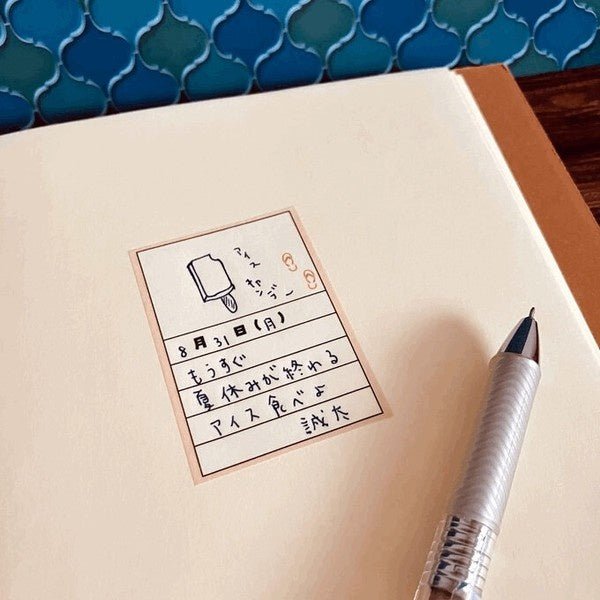 アイス
キャンデー
8月31日(月)
もうすぐ
夏休みが終わる
アイス食べよ
誠太